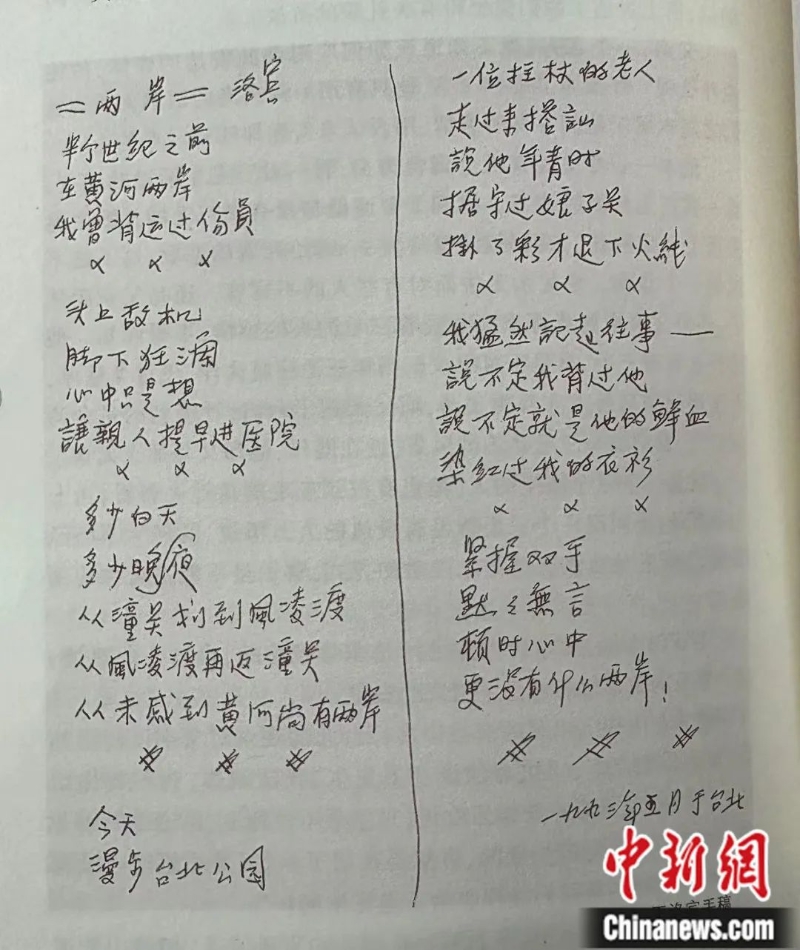 =两岸= 洛宾
半个世纪之前
在黄河两岸
我曾背运过伤員
× × ×
头上敌机
脚下狂瀾
心中只是想
讓親人提早进医院
× × ×
多少白天
多少晚夜
从潼关划到風凌渡
从風凌渡再返潼关
从未感到黄河尚有两岸
× × ×
今天
漫步台北公园
一位拄杖的老人
走过来搭訕
説他年青时
据守过娘子关
掛了彩才退下火綫
× × ×
我猛然記起往事——
説不定我背过他
説不定就是他的鲜血
染红过我的衣衫
× × ×
緊握双手
默々無言
頓时心中
更没有什么两岸！
× × ×
一九九三年五月于台北
洛宾手稿
中新網
Chinanews.com